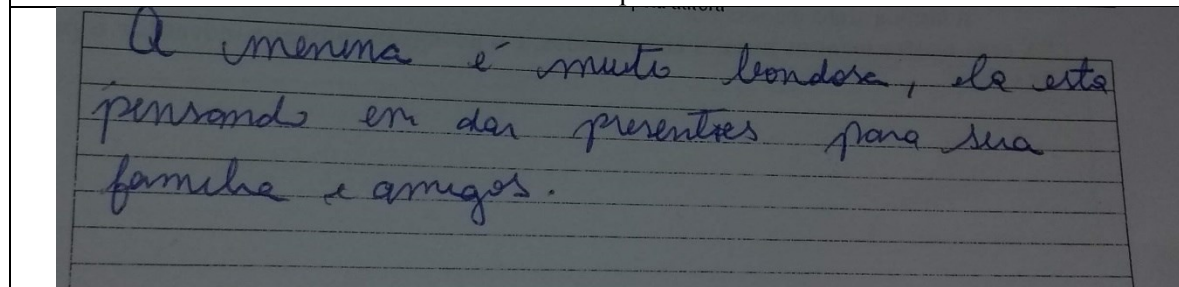 A menina é muito bondosa, ela esta
pensando em dar presentes para sua
familia e amigos.